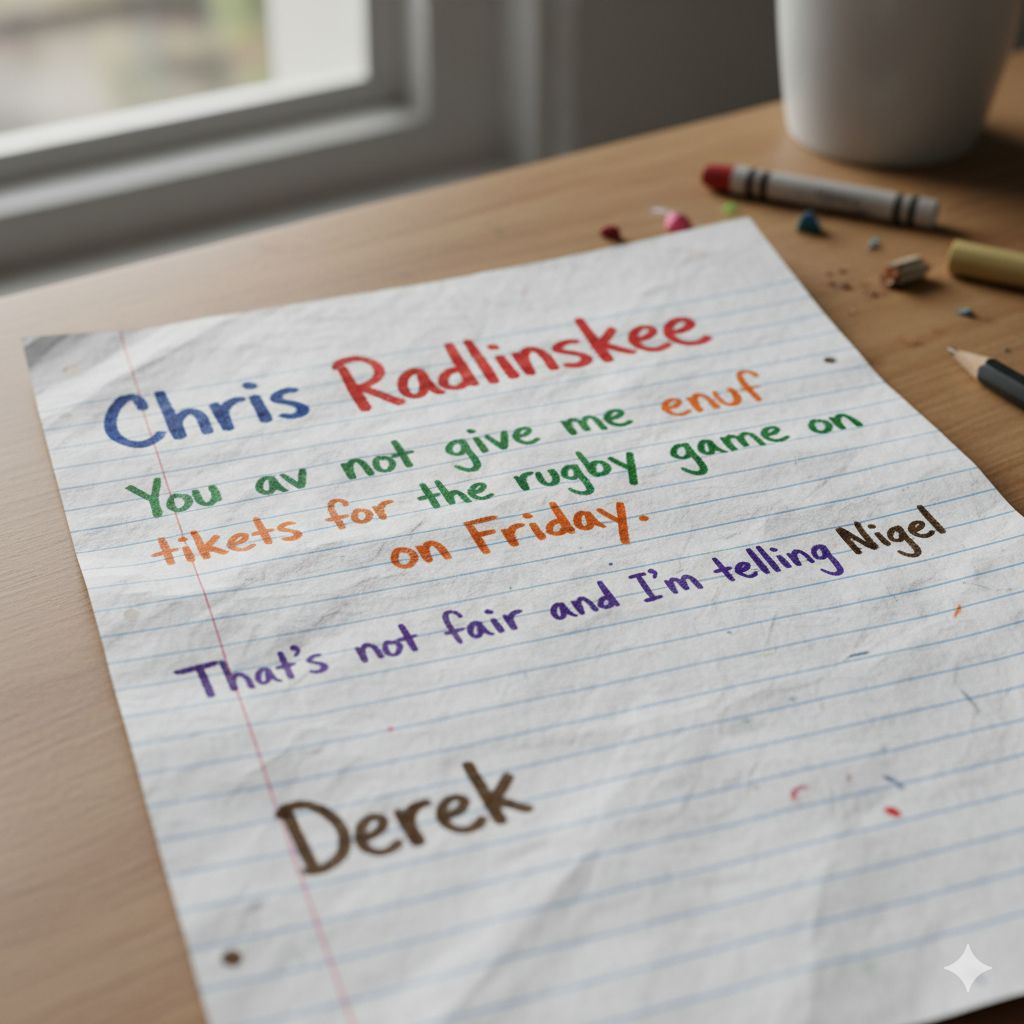 Chris Radlinskee
You av not give me enuf
tikets for the rugby game on
on Friday.
That's not fair and I'm telling Nigel
Derek